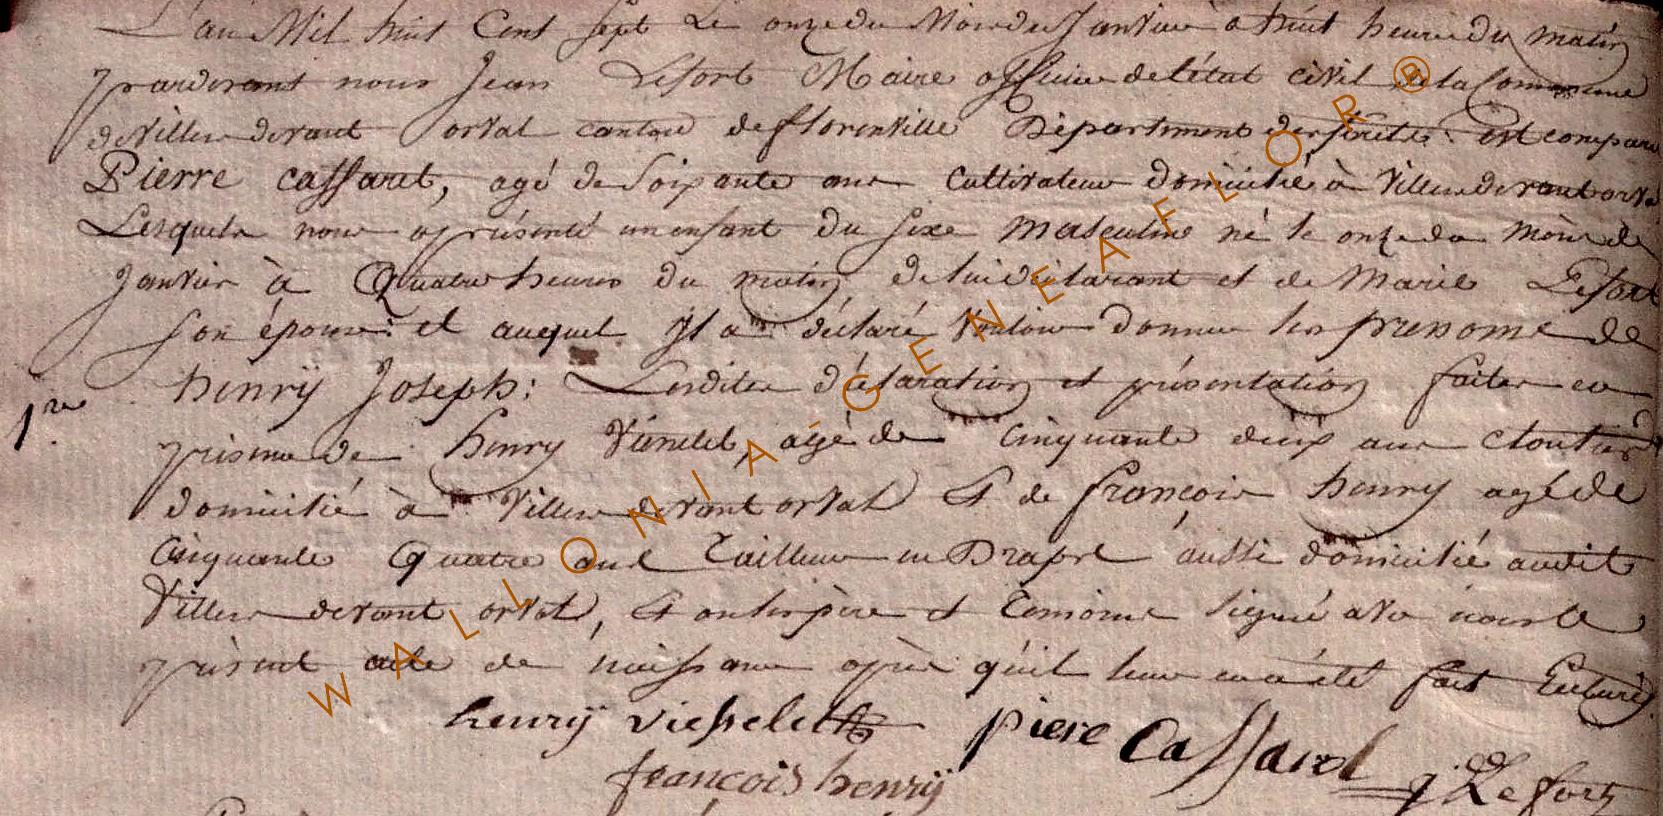 L'an Mil huit Cent sept Le onze du Mois de Janvier a huit heure du matin
pardevant nous Jean Lefort Maire officier de l'état civil de la Commune
de Villers devant orval canton de florenville Département des forêts: est comparu
Pierre cassart, agé de Soixante ans Cultivateur domicilié à Villers devant orval
Lesquels nous a présenté un enfant du sexe masculine né le onze du mois de
Janvier à Quatre heures du matin de lui déclarant et de Marie Lefort
son épouse: et auquel il a déclaré Vouloir donner les prenoms de
henrÿ Joseph: Lesdites déclaration et présentation faites en
1re
présence de henry agé de cinquante deux ans cloutier
domicilié à Villers devant orval Et de françois henry agé de
Cinquante Quatre ans Tailleur en Drapt aussi domicilié audit
Villers devant orval, Et ont les père et témoins signé avec nous le
présent acte de naissance après qu'il leur en a été fait Lecture
henrÿ piere Cassart
françois henrÿ j. Le fort
WALLONIA-GENEAFLOR®